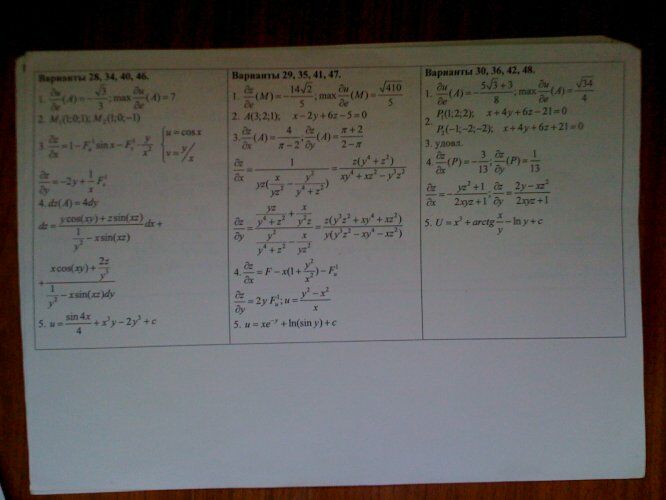 Варианты 28, 34, 40, 46.
1. ∂u/∂e (A) = −√3/3; max ∂u/∂e (A) = 7
2. M₁(1;0;1); M₂(1;0;−1)
3. ∂z/∂x = 1 − F'ᵤ sin x − F'ᵥ · y/x² { u = cos x
v = y/x
∂z/∂y = −2y + 1/x F'ᵥ
4. dz(A) = 4dy
dz = (y cos(xy) + z sin(xz))/(1/y² − x sin(xz)) dx +
+ (x cos(xy) + 2z/y³)/(1/y² − x sin(xz)dy)
5. u = sin 4x/4 + x³y − 2y³ + c
Варианты 29, 35, 41, 47.
1. ∂z/∂e (M) = −14√2/5; max ∂u/∂e (M) = √410/5
2. A(3;2;1) x − 2y + 6z − 5 = 0
3. ∂z/∂x (A) = 4/(π − 2); ∂z/∂y (A) = (π + 2)/(2 − π)
∂z/∂x = 1/(yz(x/yz² − y²/(y⁴ + z²))) = z(y⁴ + z²)/(xy⁴ + xz² − y³z²)
∂z/∂y = (yz/(y⁴ + z²) + x/y²z)/(y²/(y⁴ + z²) − x/yz²) = z(y³z² + xy⁴ + xz²)/y(y³z² − xy⁴ − xz²)
4. ∂z/∂x = F − x(1 + y²/x²) − F'ᵤ
∂z/∂y = 2y F'ᵤ; u = (y² − x²)/x
5. u = xe⁻ʸ + ln(sin y) + c
Варианты 30, 36, 42, 48.
1. ∂u/∂e (A) = −(5√3 + 3)/8; max ∂u/∂e (A) = √34/4
2. P₁(1;2;2); x + 4y + 6z − 21 = 0
P₂(−1;−2;−2); x + 4y + 6z + 21 = 0
3. удовл.
4. ∂z/∂x (P) = −3/13; ∂z/∂y (P) = 1/13
∂z/∂x = −(yz² + 1)/(2xyz + 1); ∂z/∂y = (2y − xz²)/(2xyz + 1)
5. U = x³ + arctg x/y − ln y + c